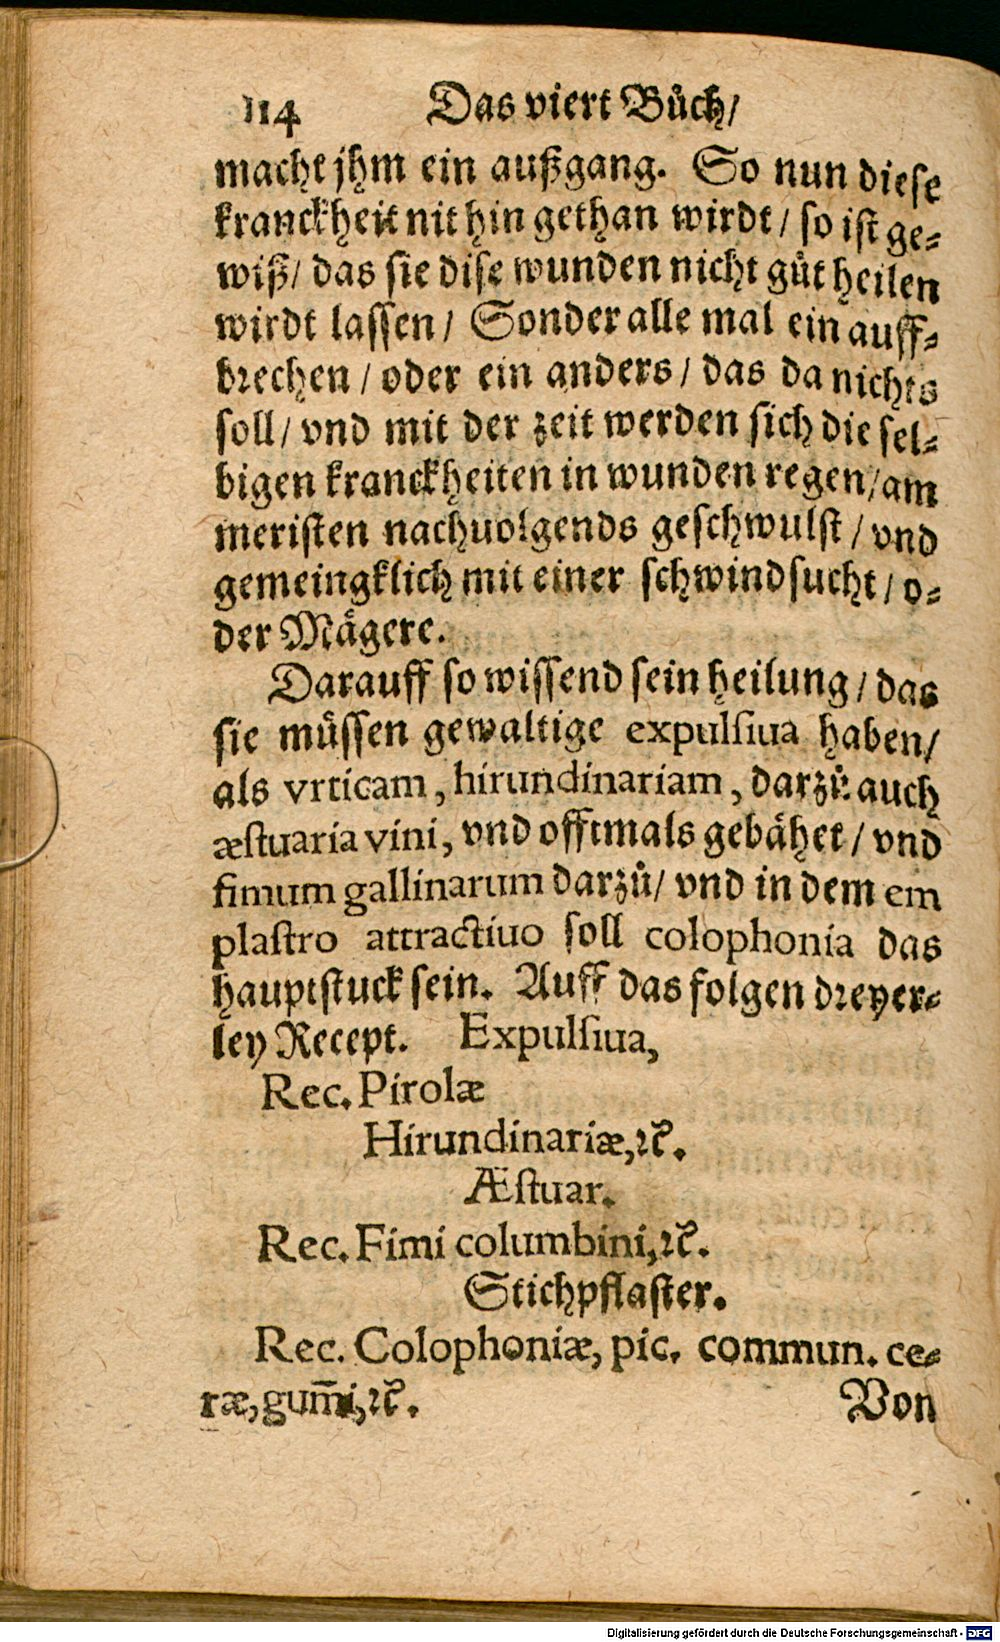 114 Das viert Bůch/
macht jhm ein außgang. So nun diese
kranckheit nit hin gethan wirdt / so ist ge-
wiß/ das sie dise wunden nicht gůt heilen
wirdt lassen / Sonder alle mal ein auff-
brechen / oder ein anders / das da nichts
soll / vnd mit der zeit werden sich die sel-
bigen kranckheiten in wunden regen / am
meristen nachuolgends geschwulst / vnd
gemeingklich mit einer schwindsucht / o-
der Mägere.
Darauff so wissend sein heilung / das
sie müssen gewaltige expulſiua haben /
als vrticam, hirundinariam, darzů auch
æſtuaria vini, vnd offtmals gebähet / vnd
fimum gallinarum darzů / vnd in dem em
plaſtro attractiuo soll colophonia das
hauptstuck sein. Auff das folgen dreyer-
ley Recept. Expulſiua,
Rec. Pirolæ
Hirundinariæ, ꝛc̃.
Æſtuar.
Rec. Fimi columbini, ꝛc̃.
Stichpflaster.
Rec. Colophoniæ, pic. commun. ce-
ræ, gum̃i, ꝛc̃.
Von
Digitalisierung gefördert durch die Deutsche Forschungsgemeinschaft - DFG